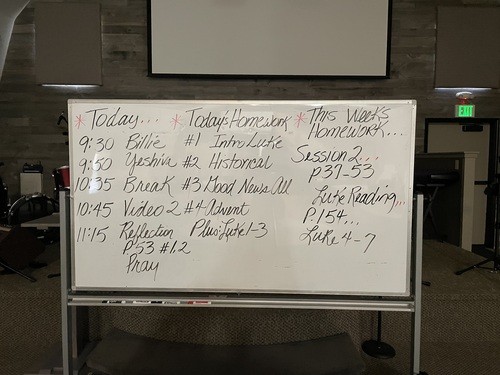 * Today...
9:30 Billie
9:50 Yeshia
10:35 Break
10:45 Video 2
11:15 Reflection
P53 #1.2
Pray
* Today's Homework
#1 Intro Luke
#2 Historical
#3 Good News All
#4 Advent
Plus: Luke 1-3
* This Weeks
Homework...
Session 2...
p37-53
Luke Reading...
P. 154...
Luke 4-7